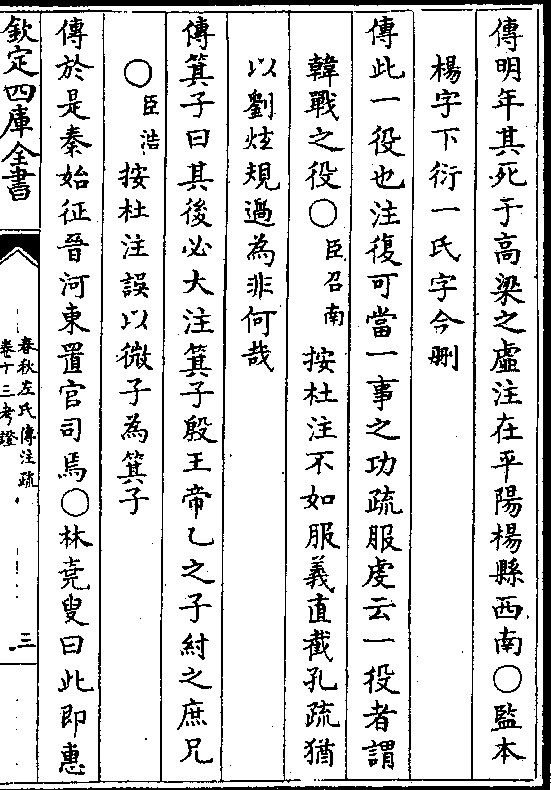 傳明年其死于高梁之虛注在平陽楊縣西南○監本
楊字下衍一氏字今刪
傳此一役也注復可當一事之功疏服虔云一役者謂
韓戰之役○臣召南按杜注不如服義直截孔疏猶
以劉炫規過為非何哉
傳箕子曰其後必大注箕子殷王帝乙之子紂之庶兄
○臣浩按杜注誤以微子為箕子
傳於是秦始征晉河東置官司焉○林堯叟曰此即惠
欽定四庫全書
春秋左氏傳注疏
卷十三考證
三